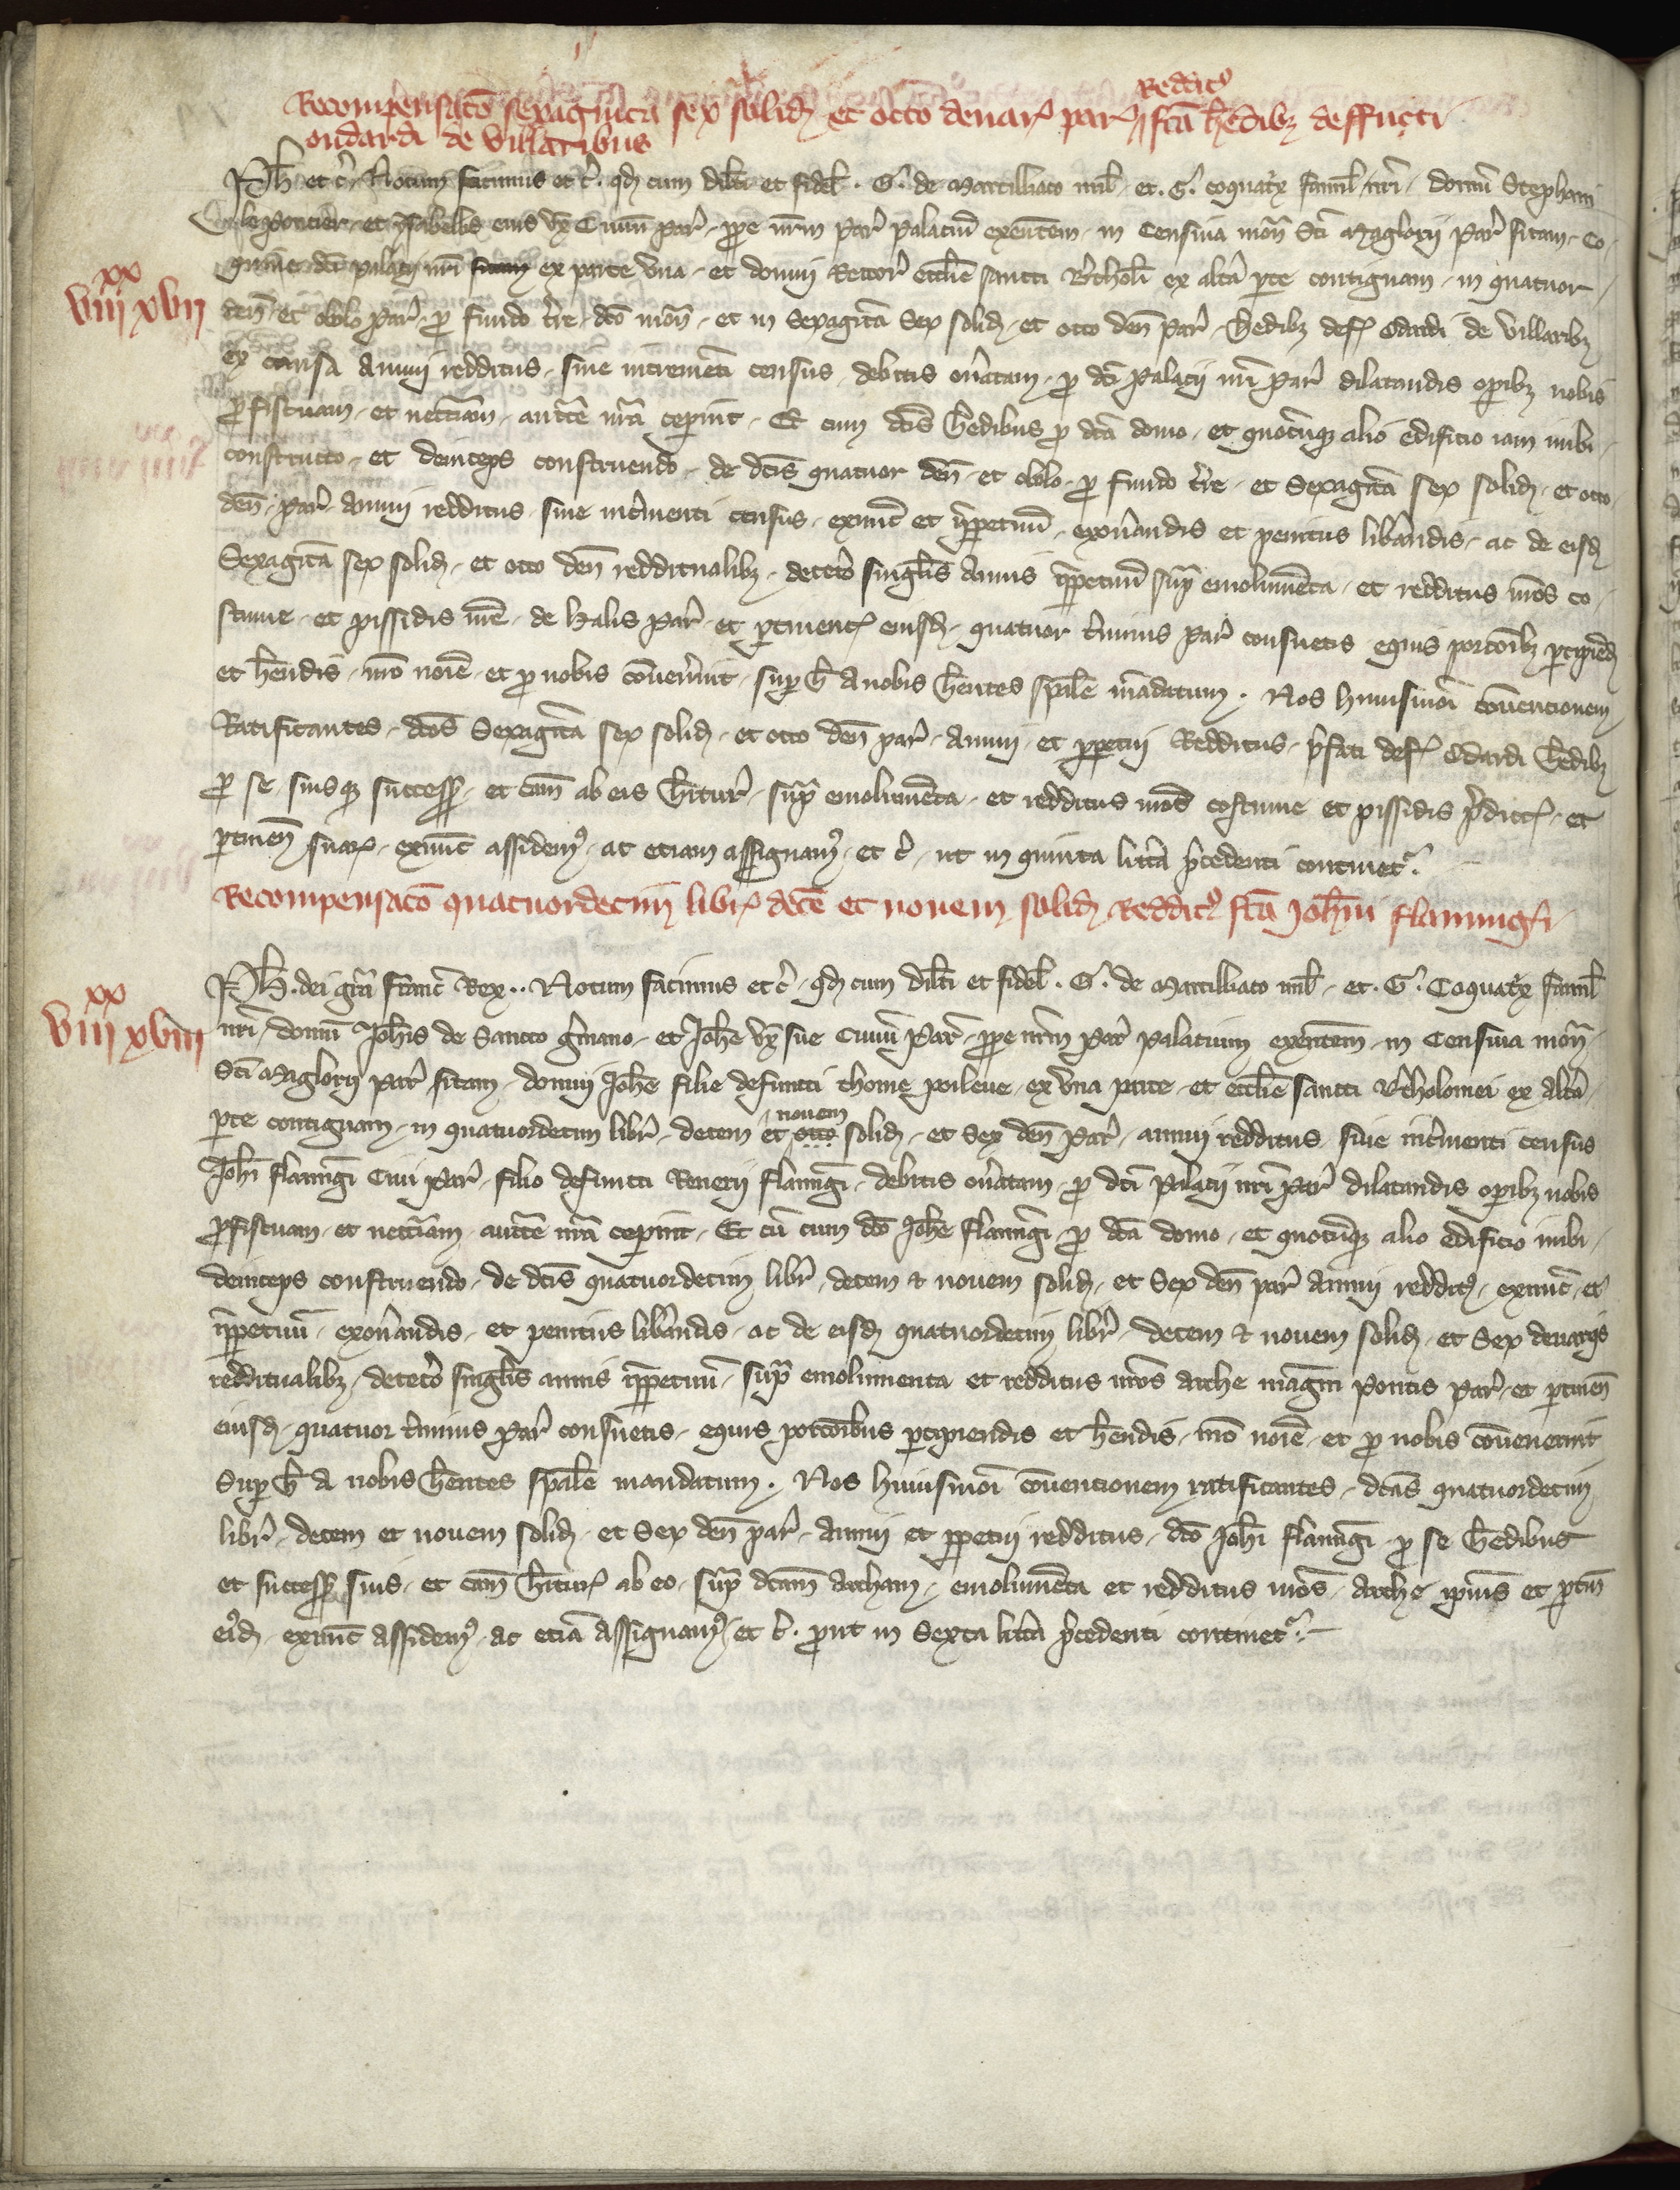 Reddit9
Recompensacō sexaginta sex solid et octo denar par fcā hedibz deffucti
oudardi de Villaribus
Ph et c̄. Notum facimus et c̄. qd cum dilcī et fidel. G. de Marcilliaco mil. et. G. coquatx famil nrī. domū Stephani
et Isabellis eius vx Ciuiū par. ppe nrm par palaciū exentem. in Censiua mon Scī Maglorii par sitam. Co
gnine dcī palacij nrī ex parte vna. et domui Rectoř ecclie sancti Bͬtholī ex altā pte contiguam. in quatuor
den. et obolo par. p fundo tr̄re. dcō mon. et in Sexagītā Sex solid. et octo den par. hedibz def Odardi de Villaribz
ex causa Annui redditus. siue incremētī census. debitis oñatam. p dcī Palacij nrī par dilatandis opibz nobis
pfiscuam. et necc̄iam. auctē nrā cepint. Et cum dcīs hedibus p dcā domo. et quocūqz alio edificio iam inibi
constructo. et deinceps construendo. de dcīs quatuor den. et obolo. p fundo tr̄re. et Sexagītā sex solid. et octo
den. par. Annui redditus siue incr̄menti census. exnūc et īppetuū. exoñandis et penitus libandis. ac de eisd
Sexagītā sex solid. et octo den reddítualibz. decet̄o singlīs Annis īppetuū sup̄ emolumēta. et redditus nr̄os co
stume. et pissidis nr̄e. de halis par. et ptinent eiusd. quatuor t̄minis par consuetis equis porcōibz pcipiēd
et hēndis. nrō noīe. et p nobis cōuen̄int. sup h̄ a nobis hentes sp̄ale mādatum. Nos huiusmōi cōuencionem
Ratificantes. dcōs Sexagītā sex solid. et octo den par. Annui et ppetui Redditus. p̄fati def Odardi hedibz
p se suisqz success. et cām ab eis hitur. sup̄ emolumēta. et redditus nr̄os costume et pissidis p̄dict. et
ptinen suaꝝ. exnūc assidem9. ac etiam assignam9. et c̄. ut in quinta littā p̄cedenti continet.
Recompensacō quatuordecim libr dece et nouem solid Reddit9 fcā Johī flamingi
viij xvij
Ph. dei grā franc Rex.. Notum facimus et c̄. qd cum dilcī et fidel. G. de Marcilliaco mil. et. G. Coquatx famil
nrī. domū Johis de Sancto gmano. et Johe vx sue Ciuiū par. ppe nrm par palacium exentem. in Censiua mon
Scī Maglorij par sitam. domui Johe filie defuncti thome poileue. ex vna parte. et ecclie sancti Bͬtholomei ex altā
pte contiguam. in quatuordecim libr. decem et octo nouem solid. et Sex den par. annui redditus siue incr̄menti census
Johī flamīgi Ciui par. filio defuncti Renerij flamīgi. debitis oñatam. p dcī palacij nrī par dilatandis opibz nobis
pfiscuam. et necc̄iam. auctē nrā cepint. Et cū cum dcō Johe flamīgi. p dcā domo. et quocūqz alio edificio inibi
deinceps construendo. de dcīs quatuordecim libr. decem et nouem solid. et Sex den par Annui reddit9. exnūc. et
īppetuū. exoñandis. et penitus libandis. ac de eisd quatuordecim libr. decem et nouem solid. et Sex denariis
reddítualibz. decet̄o singlīs annis īppetuū. sup̄ emolumenta et redditus nr̄os Arche magni pontis par. et ptinen
eiusd. quatuor t̄minis par consuetis. equis porcōibus pcipiendis et hēndis. nrō noīe. et p nobis cōuenerint
Sup h̄ a nobis hentes sp̄ale mandatum. Nos huiusmōi cōuencionem ratificantes. dcās quatuordecim
libr. decem et nouem solid. et Sex den par. Annui et ppetui redditus. dcō Johī flamīgi p se hedibus
et success suis. et cām hitur ab eo. sup̄ dcām Archam. emolumēta et redditus nr̄os. Arche ip̄ius et ptin
eīd. exnūc Assidem9. ac etiā Assignam9. et c̄. put in Sexta littā p̄cedenti continet.
viij xviij